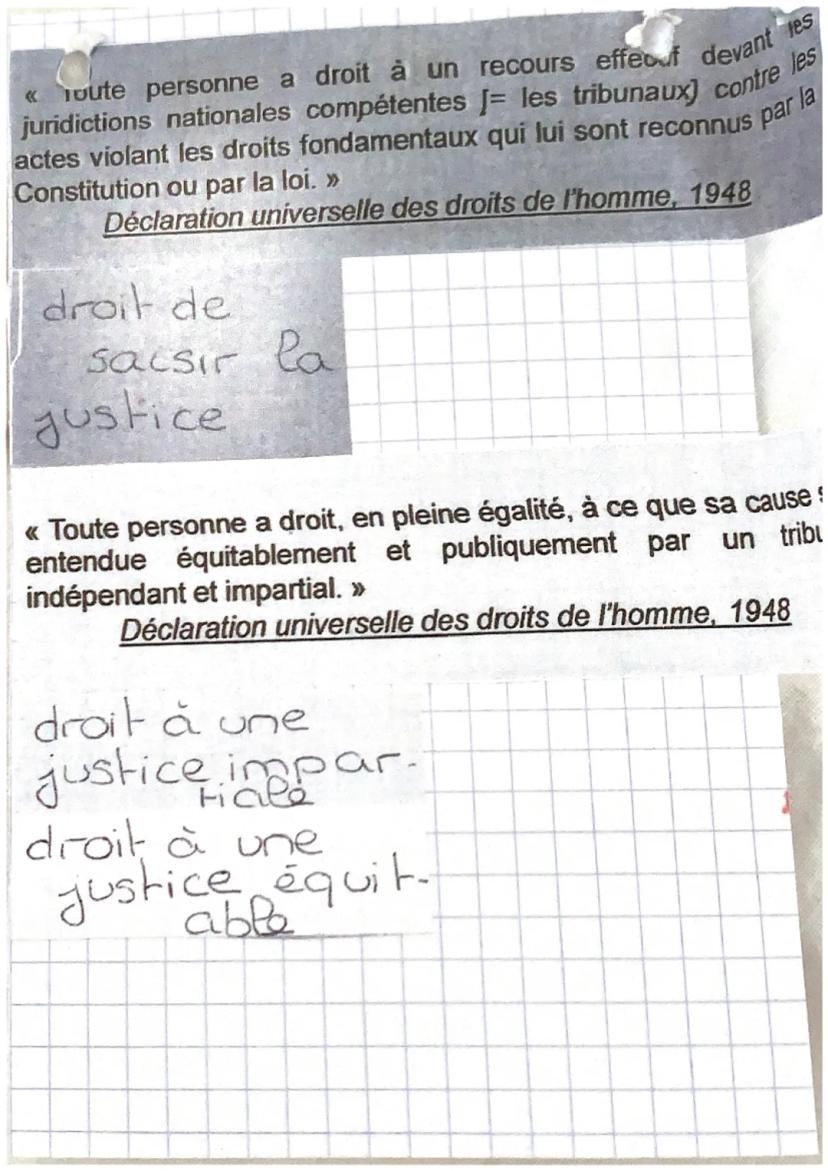 « Toute personne a droit à un recours effectif devant les
juridictions nationales compétentes [= les tribunaux] contre les
actes violant les droits fondamentaux qui lui sont reconnus par la
Constitution ou par la loi. »
Déclaration universelle des droits de l'homme, 1948
droit de
saisir la
justice
« Toute personne a droit, en pleine égalité, à ce que sa cause s
entendue équitablement et publiquement par un tribu
indépendant et impartial. »
Déclaration universelle des droits de l'homme, 1948
droit à une
justice impar-
tiale
droit à une
justice équit-
able